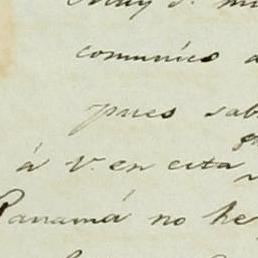 Muy S. mi
comunico a
pues sab
á V. en esta
Panamá no he